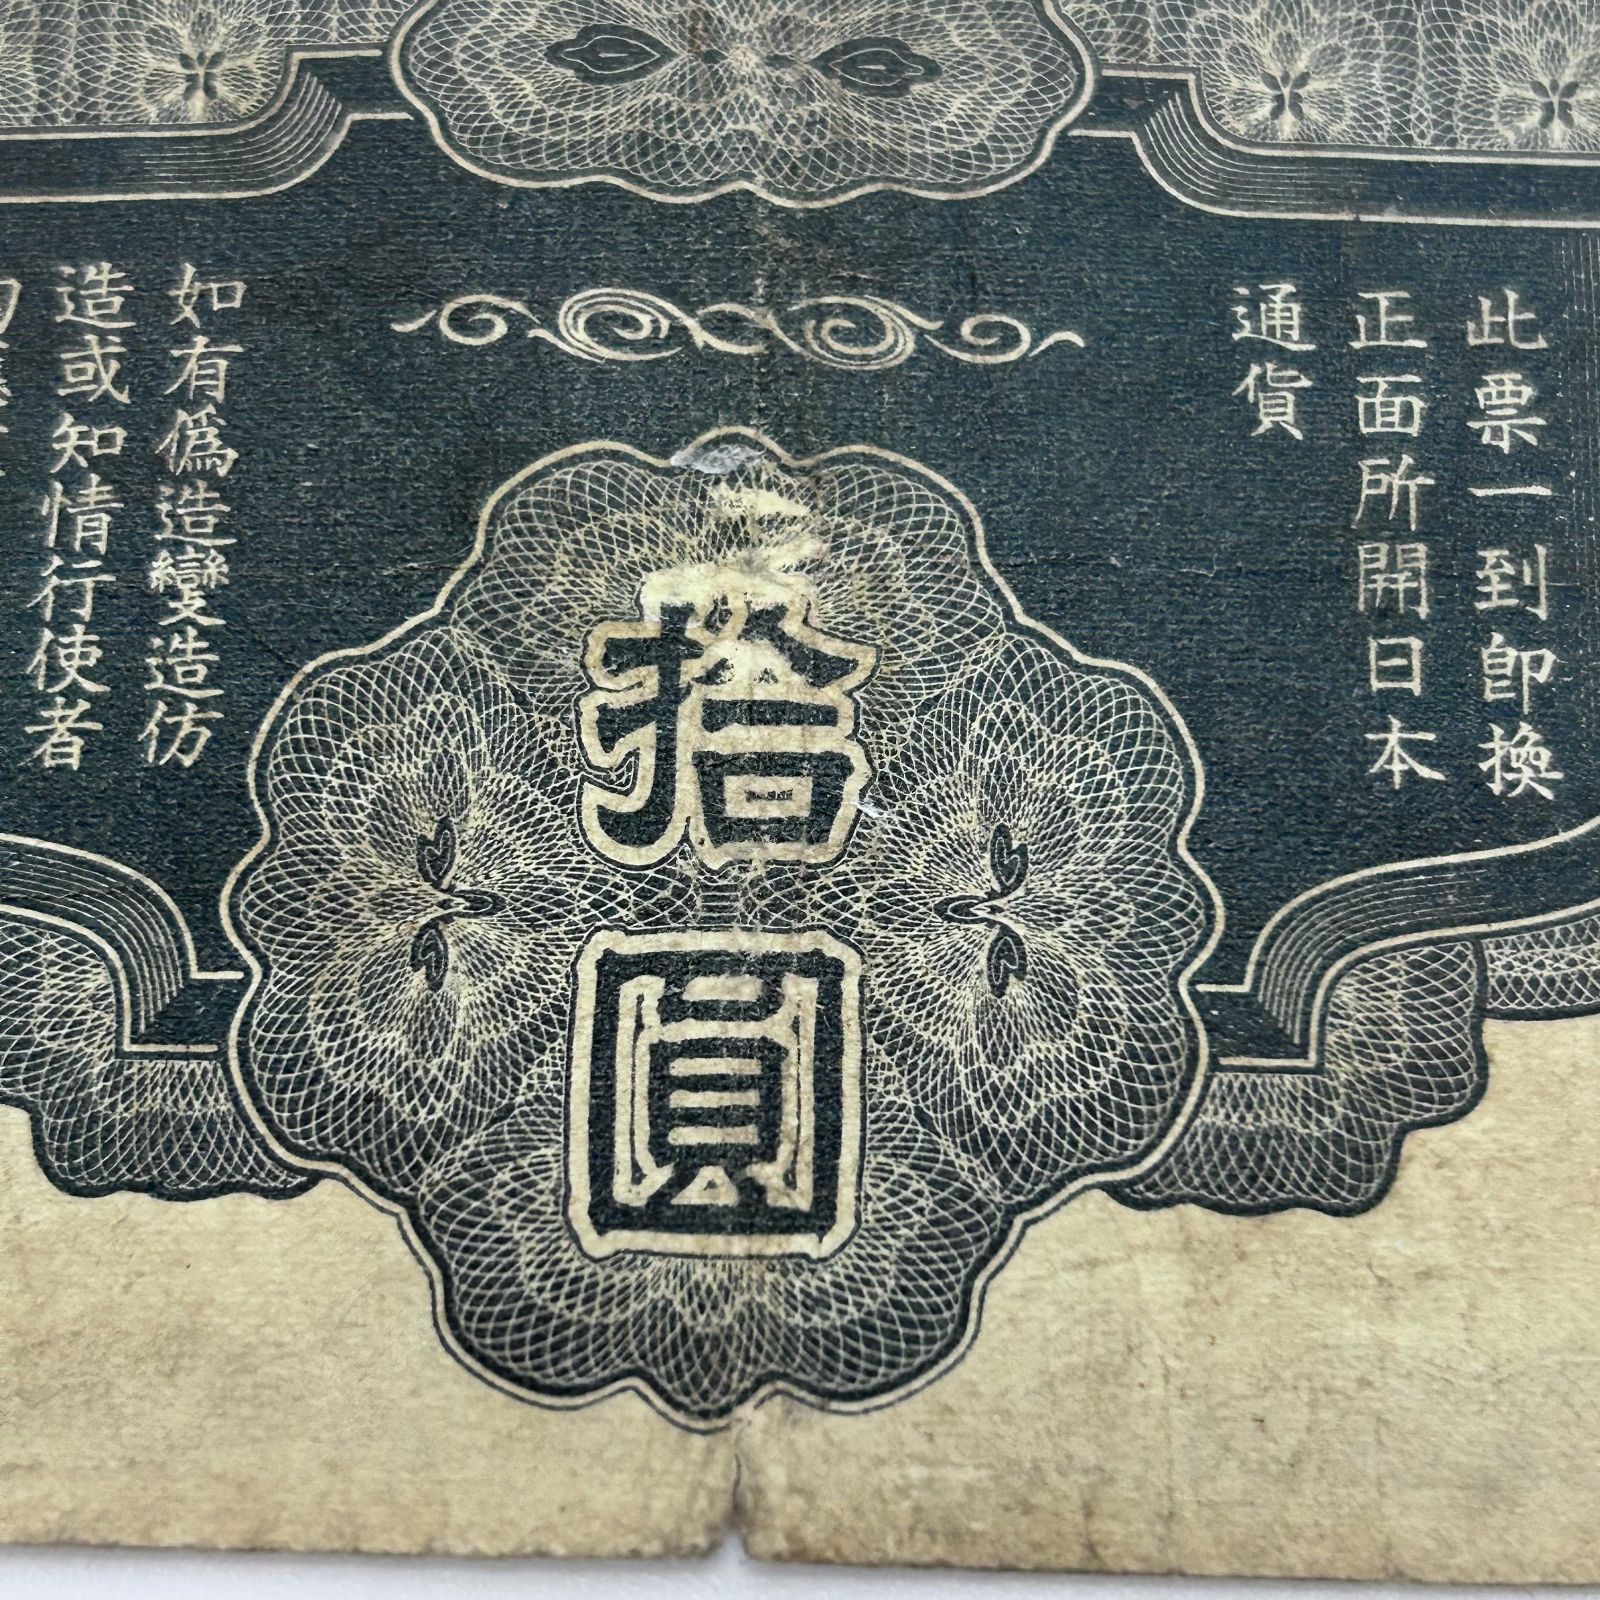 此票一到即換
正面所開日本
通貨
拾圓
如有偽造變造仿
造或知情行使者